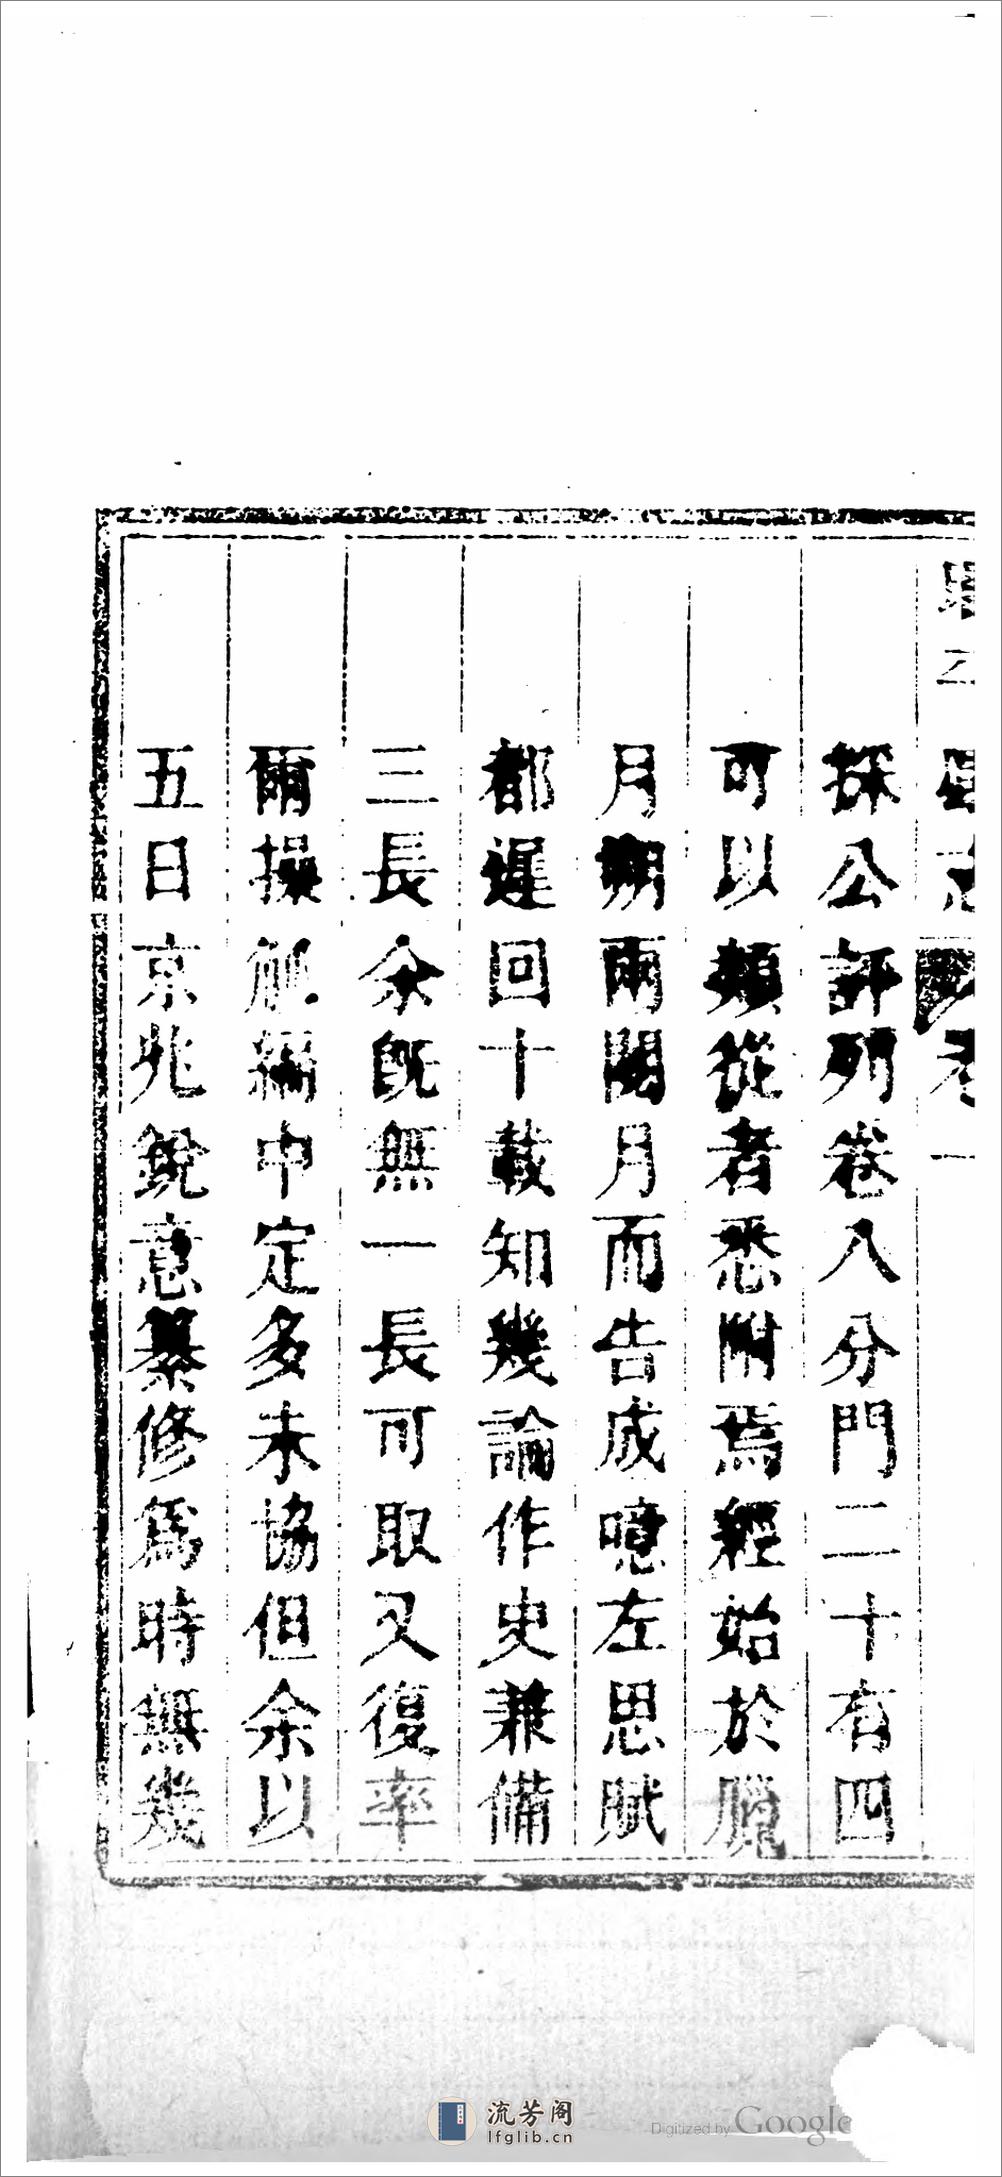 卷一
採公評列卷八分門二十有四
可以類從者悉附焉經始於臘
月朔兩閱月而告成噫左思賦
都遲回十載知幾論作史兼備
三長余既無一長可取又復率
爾操觚編中定多未協但余以
五日京兆銳意纂修為時無幾
流芳阁
lfglib.cn
Digitized by Google